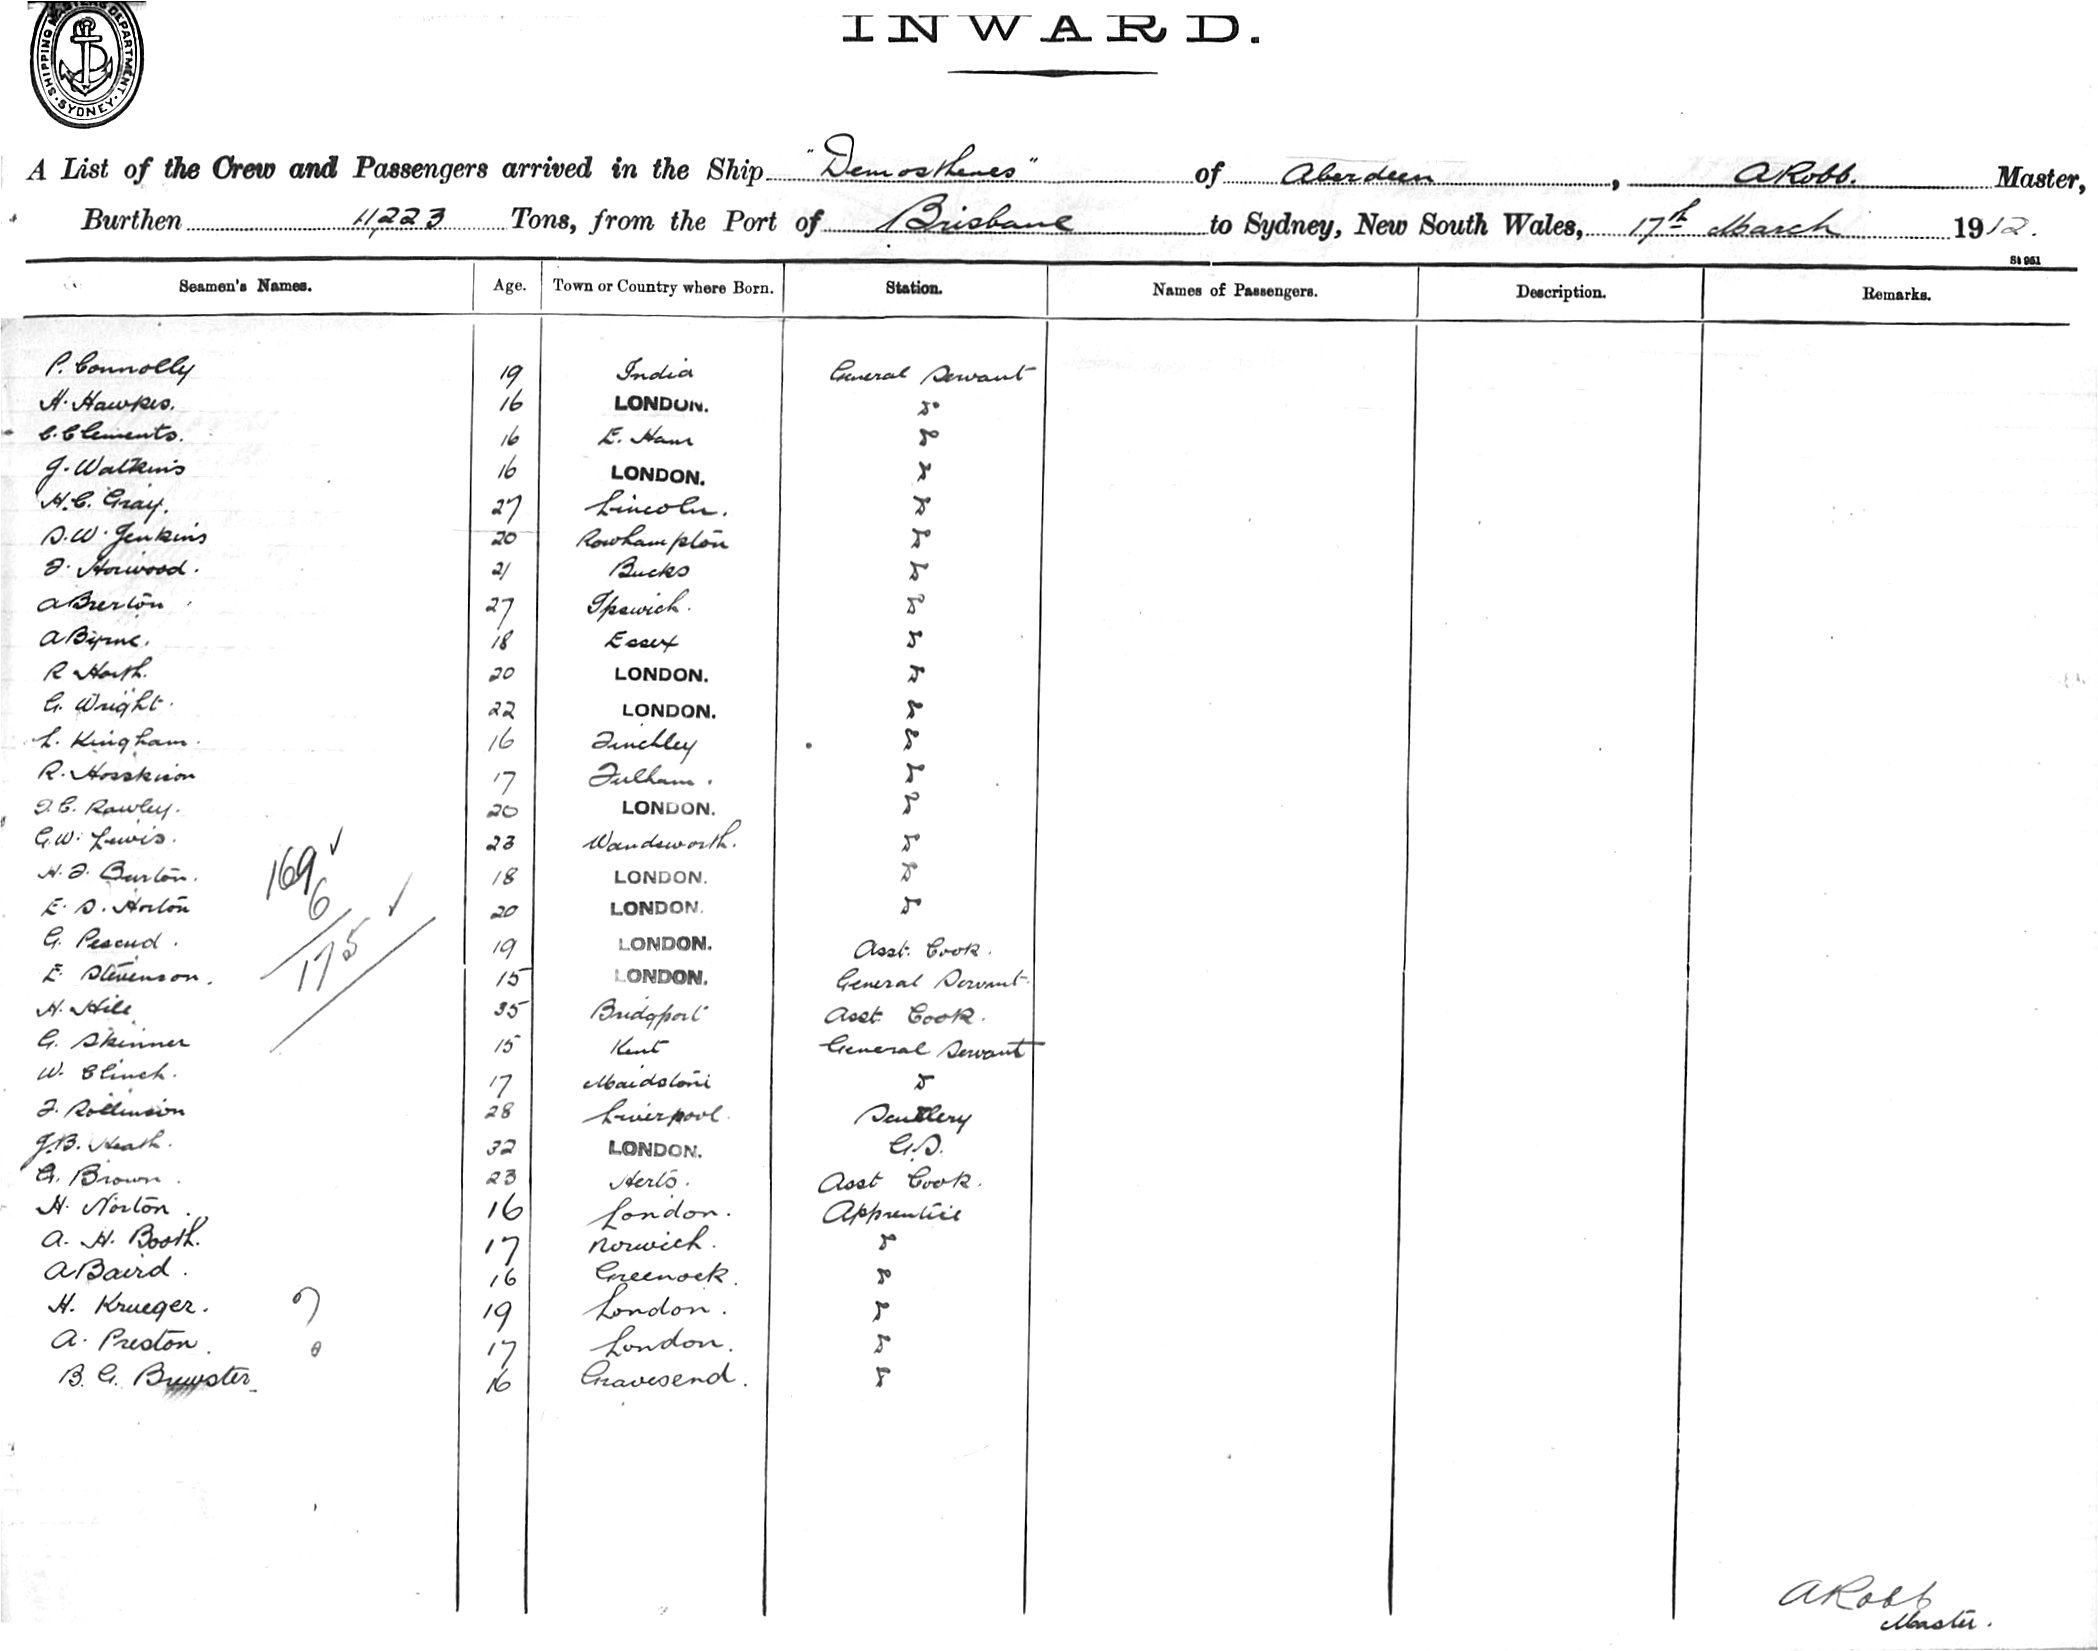 SHIPPING MASTERS DEPARTMENT SYDNEY
INWARD.
A List of the Crew and Passengers arrived in the Ship "Demosthenes" of Aberdeen, A Robb. Master,
Burthen 11,223 Tons, from the Port of Brisbane to Sydney, New South Wales, 17th March 1912.
St 951
Seamen's Names. Age. Town or Country where Born. Station. Names of Passengers. Description. Remarks.
P. Connolly 19 India General Servant
H. Hawkes. 16 LONDON. Do
C. Clements. 16 E. Ham Do
J. Watkins 16 LONDON. Do
H. C. Gray. 27 Lincoln. Do
S. W. Jenkins 20 Rowhampton Do
F. Horwood. 21 Bucks Do
A Brerton 27 Ipswich. Do
A Byrne. 18 Essex Do
R North. 20 LONDON. Do
G. Wright. 22 LONDON. Do
L. Kingham. 16 Finchley Do
R. Hosskison 17 Fulham. Do
F. C. Rawley. 20 LONDON. Do
G. W. Lewis. 23 Wandsworth. Do
H. F. Burton. 18 LONDON. Do
E. S. Horton 20 LONDON. Do
G. Pescud. 19 LONDON. Asst. Cook.
E. Stevenson. 15 LONDON. General Servant
H. Hill 35 Bridgport Asst. Cook.
G. Skinner 15 Kent General Servant
W. Clinch. 17 Maidstone Do
F. Rollinson 28 Liverpool. Scullery
J. B. Heath. 32 LONDON. G.S.
G. Brown. 23 Herts. Asst Cook.
H. Norton. 16 London. Apprentice
A. H. Booth. 17 Norwich. Do
A Baird. 16 Greenock. Do
H. Krueger. 19 London. Do
A. Preston. 17 London. Do
B. G. Brewster 16 Gravesend. Do
169 ✓
6
175 ✓
A Robb
Master.